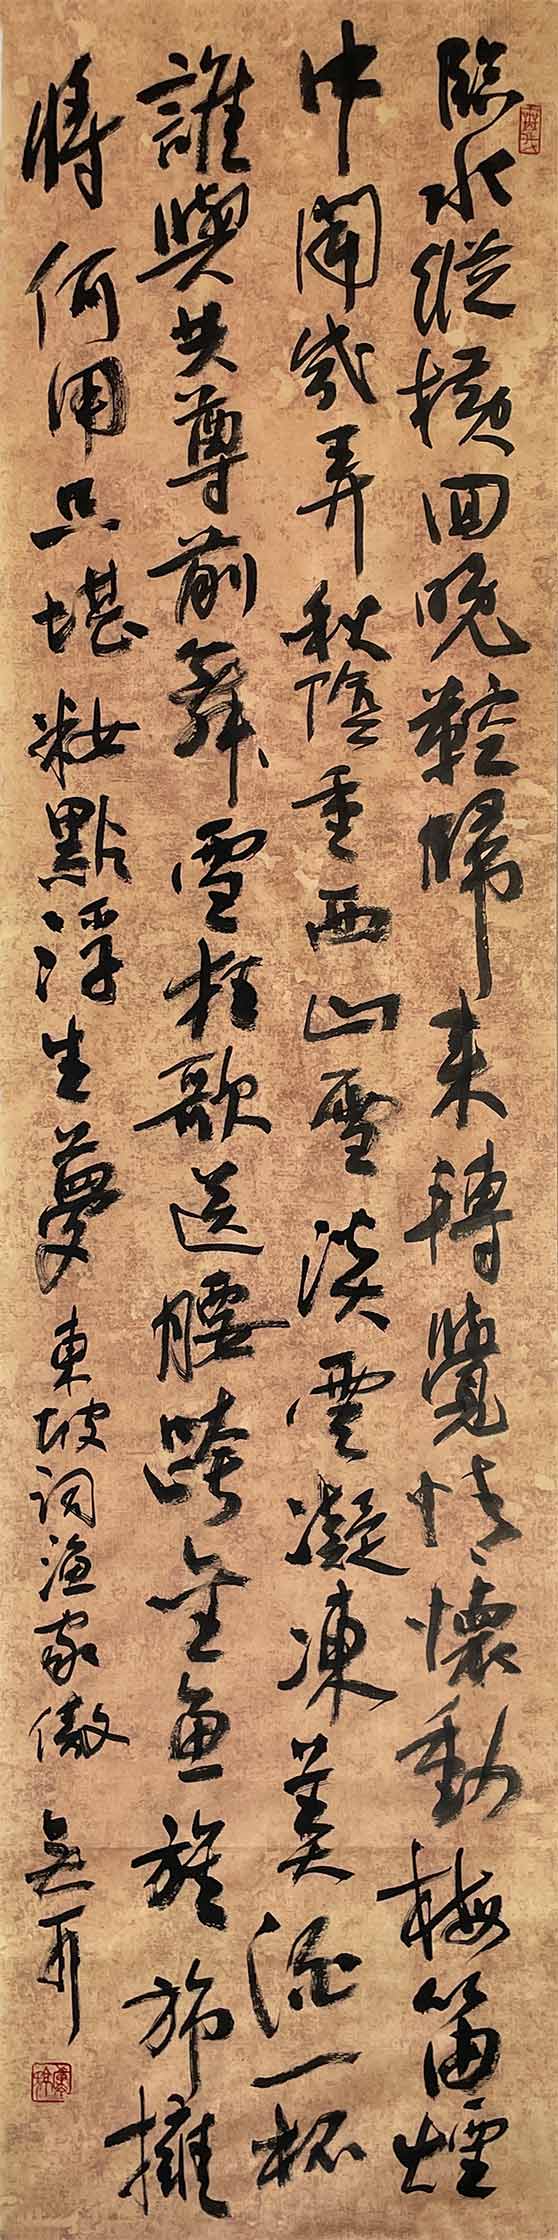 臨水縱橫回晚鞚歸來轉覺情懷動梅笛煙
中聞幾弄秋陰重西山雪淡雲凝凍美酒一杯
誰與共尊前舞雪狂歌送腰跨金魚旌旆擁
將何用只堪籹點浮生夢東坡詞漁家傲